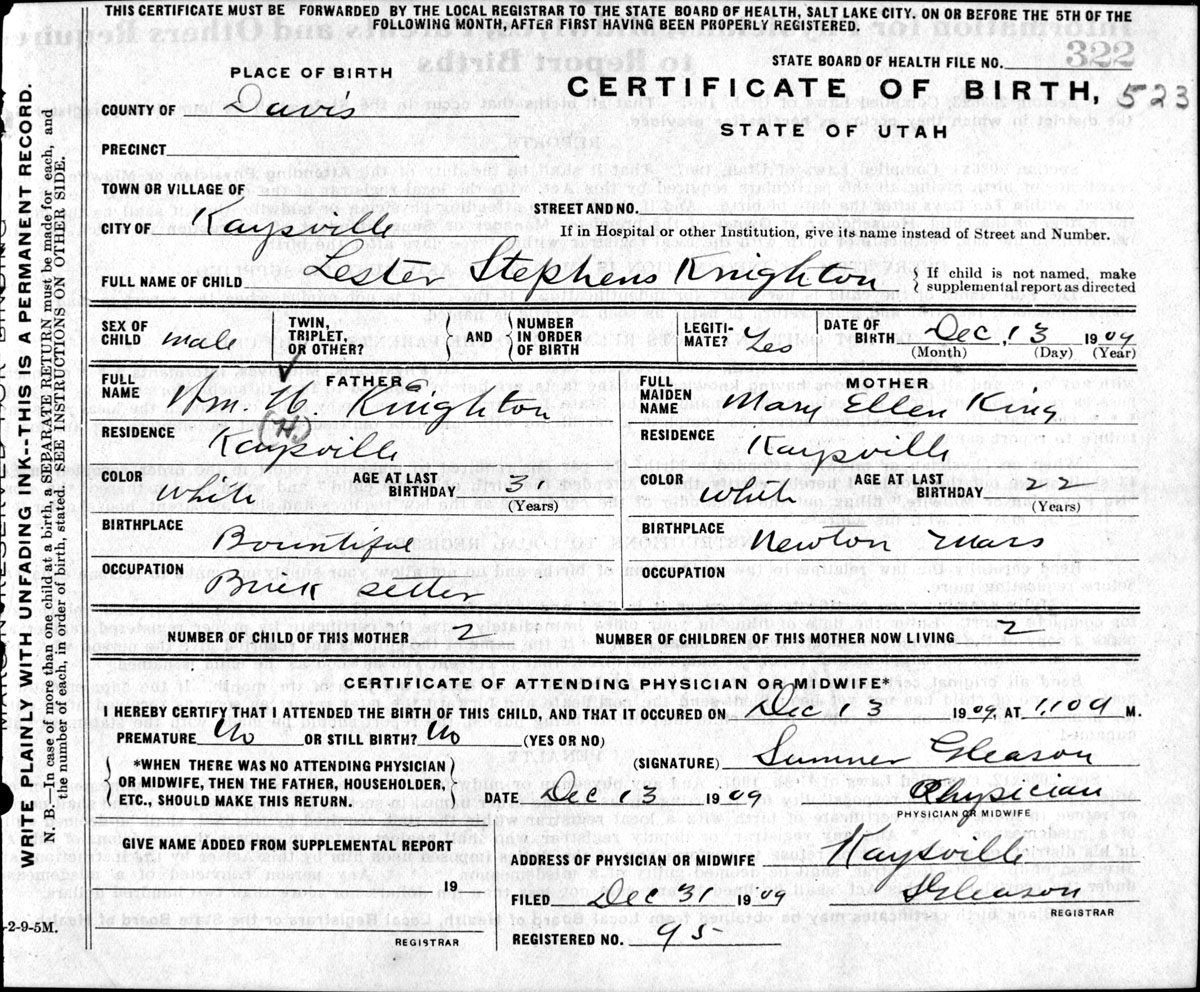 THIS CERTIFICATE MUST BE FORWARDED BY THE LOCAL REGISTRAR TO THE STATE BOARD OF HEALTH, SALT LAKE CITY. ON OR BEFORE THE 5TH OF THE
FOLLOWING MONTH, AFTER FIRST HAVING BEEN PROPERLY REGISTERED.
322
STATE BOARD OF HEALTH FILE NO.
PLACE OF BIRTH
CERTIFICATE OF BIRTH, 523
COUNTY OF Davis
STATE OF UTAH
PRECINCT
TOWN OR VILLAGE OF
STREET AND NO.
CITY OF Kaysville
If in Hospital or other Institution, give its name instead of Street and Number.
FULL NAME OF CHILD Lester Stephens Knighton
If child is not named, make
supplemental report as directed
SEX OF CHILD male
TWIN, TRIPLET, OR OTHER?
AND
NUMBER IN ORDER OF BIRTH
LEGITIMATE? Yes
DATE OF BIRTH Dec, 13 1909
(Month) (Day) (Year)
FATHER
FULL NAME Wm H. Knighton
(H)
RESIDENCE Kaysville
COLOR White
AGE AT LAST BIRTHDAY
(Years)
BIRTHPLACE Bountiful
OCCUPATION Brick setter
MOTHER
FULL MAIDEN NAME Mary Ellen King
RESIDENCE Kaysville
COLOR White
AGE AT LAST BIRTHDAY 22
(Years)
BIRTHPLACE Newton Mass
OCCUPATION
NUMBER OF CHILD OF THIS MOTHER 2
NUMBER OF CHILDREN OF THIS MOTHER NOW LIVING 2
CERTIFICATE OF ATTENDING PHYSICIAN OR MIDWIFE*
I HEREBY CERTIFY THAT I ATTENDED THE BIRTH OF THIS CHILD, AND THAT IT OCCURED ON Dec 13 1909, AT M.
PREMATURE No OR STILL BIRTH? No (YES OR NO)
(SIGNATURE) Sumner Gleason
*WHEN THERE WAS NO ATTENDING PHYSICIAN
OR MIDWIFE, THEN THE FATHER, HOUSEHOLDER,
ETC., SHOULD MAKE THIS RETURN.
Dec 13 1909 Physician
PHYSICIAN OR MIDWIFE
GIVE NAME ADDED FROM SUPPLEMENTAL REPORT
19
REGISTRAR
ADDRESS OF PHYSICIAN OR MIDWIFE Kaysville
FILED Dec 31 1909 S Gleason
REGISTRAR
REGISTERED NO. 95
WRITE PLAINLY WITH UNFADING INK--THIS IS A PERMANENT RECORD.
N. B.--In case of more than one child at a birth, a SEPARATE RETURN must be made for each, and
the number of each, in order of birth, stated. SEE INSTRUCTIONS ON OTHER SIDE.
2-9-5M.